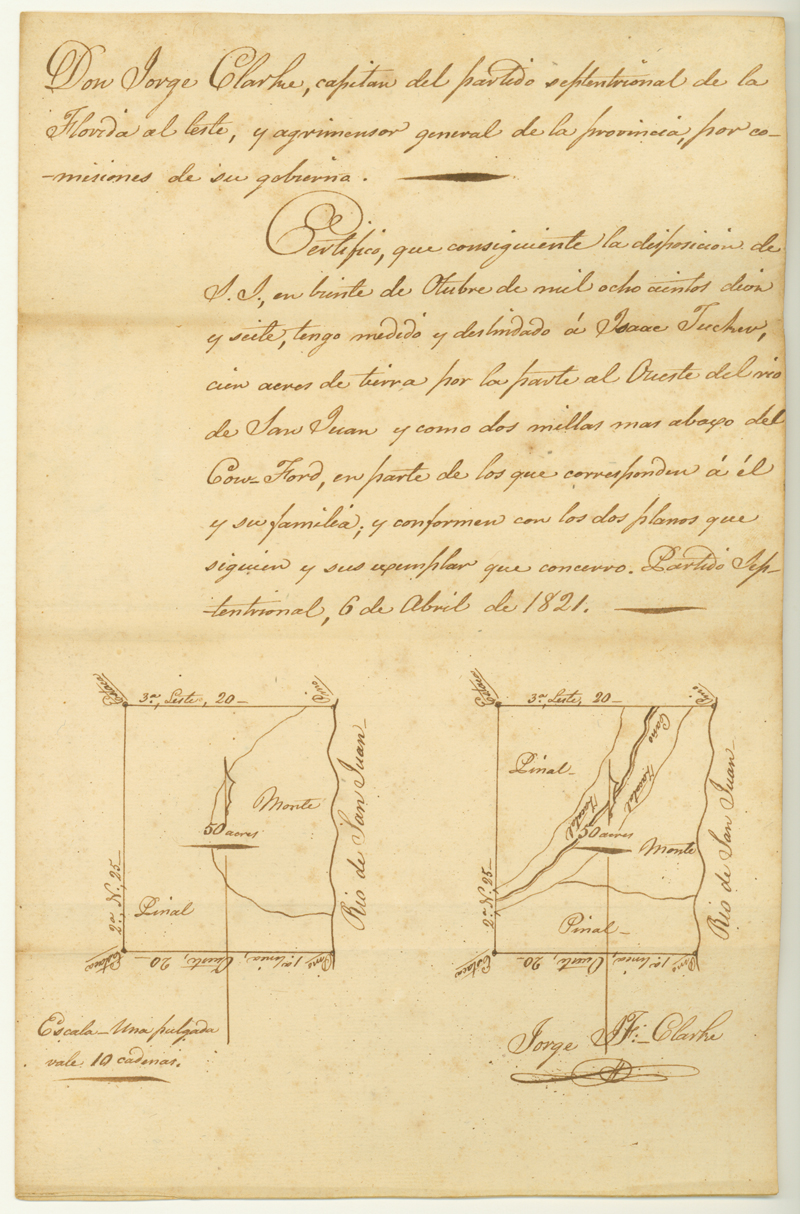 Don Jorge Clarke, capitan del partido septentrional de la
Florida al leste, y agrimensor general de la provincia, por co-
-misiones de su gobierno.
Certifico, que consiguiente la disposicion de
S. S., en biente de Otubre de mil ocho cientos dies
y seite, tengo medido y deslindado á Isaac Tucker,
cien acres de tierra por la parte al Oueste del rio
de San Juan y como dos millas mas abaxo del
Cow-Ford, en parte de los que corresponden á él
y su familia; y conformen con los dos planos que
siguien y sus exemplar que concerro. Partido Sep-
-tentrional, 6 de Abril de 1821.
Estaca
3.a, Leste, 20-
Pino
Monte
50 acres
Rio de San Juan-
2.a, N. 25-
Pinal
Estaca
Pino 1.a linea, Oueste, 20-
Escala- Una pulgada
vale 10 cadenas.
Estaca
3.a, Leste, 20-
Pino
Pinal-
Cano
50 acres
Monte
Rio de San Juan-
2.a, N. 25-
Pinal-
Estaca
Pino 1.a linea, Oueste, 20-
Jorge J. F.- Clarke